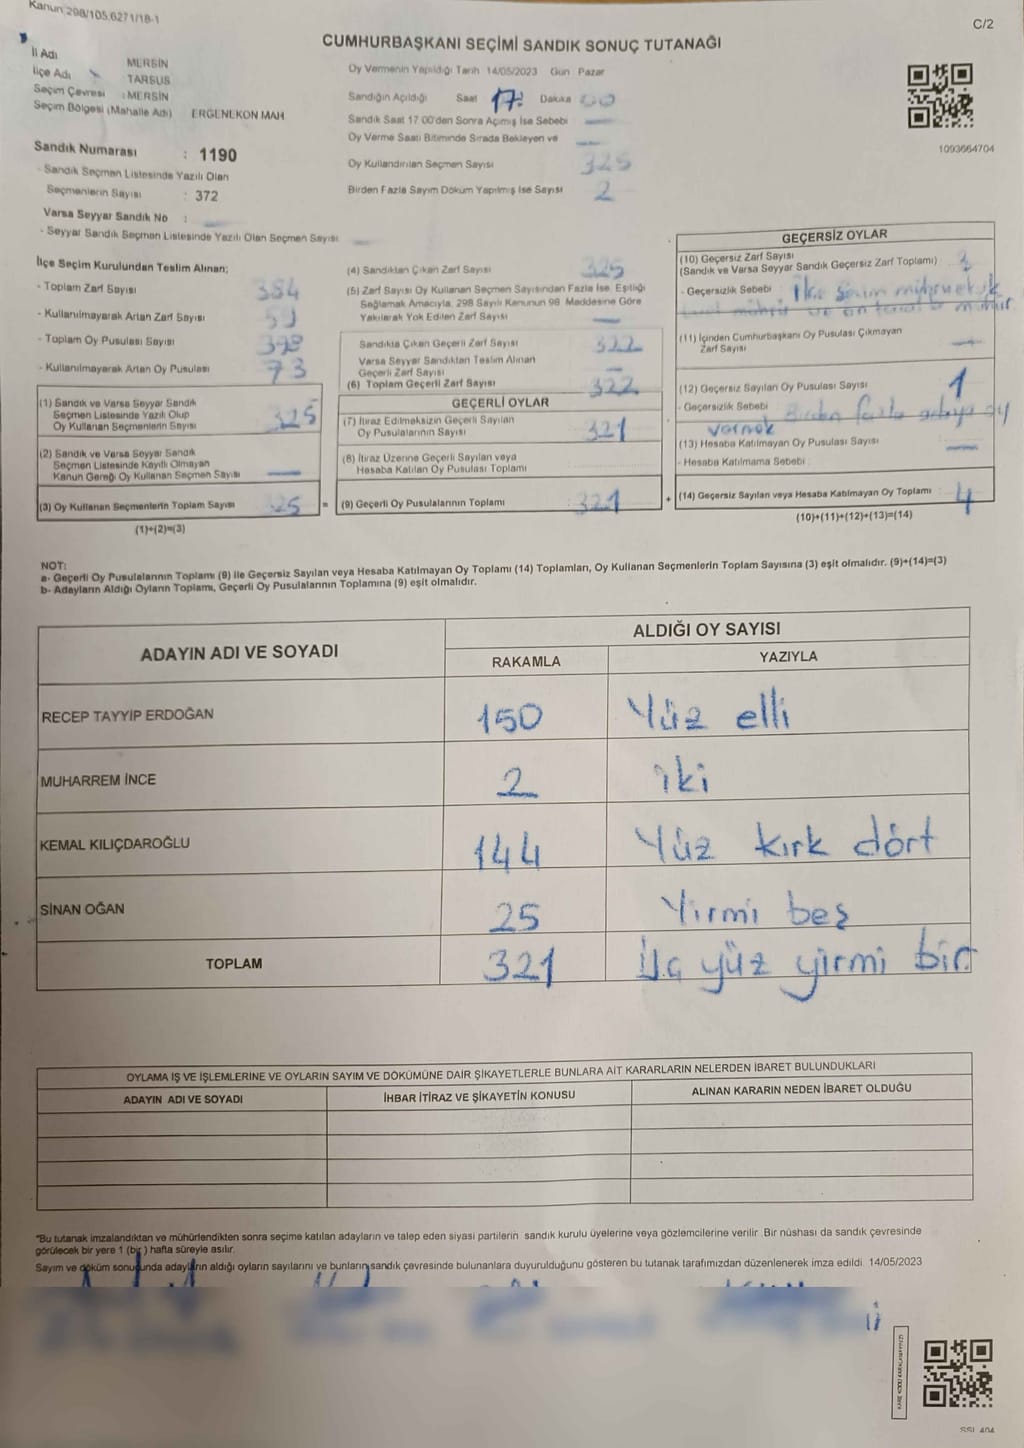 Kanun 298/105,6271/18-1
C/2
CUMHURBAŞKANI SEÇİMİ SANDIK SONUÇ TUTANAĞI
İl Adı MERSİN
İlçe Adı TARSUS
Seçim Çevresi : MERSİN
Seçim Bölgesi (Mahalle Adı) ERGENEKON MAH
Sandık Numarası : 1190
- Sandık Seçmen Listesinde Yazılı Olan
Seçmenlerin Sayısı : 372
Varsa Seyyar Sandık No :
- Seyyar Sandık Seçmen Listesinde Yazılı Olan Seçmen Sayısı
Oy Vermenin Yapıldığı Tarih 14/05/2023 Gün Pazar
Sandığın Açıldığı Saat 17: Dakika 00
Sandık Saat 17 00'den Sonra Açımış İse Sebebi
Oy Verme Saati Bitiminde Sırada Bekleyen ve
Oy Kullandırılan Seçmen Sayısı 325
Birden Fazla Sayım Döküm Yapılmış İse Sayısı 2
1093664704
İlçe Seçim Kurulundan Teslim Alınan;
- Toplam Zarf Sayısı 384
- Kullanılmayarak Artan Zarf Sayısı 59
- Toplam Oy Pusulası Sayısı 398
- Kullanılmayarak Artan Oy Pusulası 73
(1) Sandık ve Varsa Seyyar Sandık
Seçmen Listesinde Yazılı Olup
Oy Kullanan Seçmenlerin Sayısı 325
(2) Sandık ve Varsa Seyyar Sandık
Seçmen Listesinde Kayıtlı Olmayan
Kanun Gereği Oy Kullanan Seçmen Sayısı
(3) Oy Kullanan Seçmenlerin Toplam Sayısı 325
(1)+(2)=(3)
(4) Sandıktan Çıkan Zarf Sayısı 325
(5) Zarf Sayısı Oy Kullanan Seçmen Sayısından Fazla İse, Eşitliği
Sağlamak Amacıyla, 298 Sayılı Kanunun 98 Maddesine Göre
Yakılarak Yok Edilen Zarf Sayısı
Sandıkta Çıkan Geçerli Zarf Sayısı 322
Varsa Seyyar Sandıktan Teslim Alınan
Geçerli Zarf Sayısı
(6) Toplam Geçerli Zarf Sayısı 322
GEÇERLİ OYLAR
(7) İtiraz Edilmeksizin Geçerli Sayılan
Oy Pusulalarının Sayısı 321
(8) İtiraz Üzerine Geçerli Sayılan veya
Hesaba Katılan Oy Pusulası Toplamı
= (9) Geçerli Oy Pusulalarının Toplamı : 321
GEÇERSİZ OYLAR
(10) Geçersiz Zarf Sayısı
(Sandık ve Varsa Seyyar Sandık Geçersiz Zarf Toplamı) 3
- Geçersizlik Sebebi
(11) İçinden Cumhurbaşkanı Oy Pusulası Çıkmayan
Zarf Sayısı
(12) Geçersiz Sayılan Oy Pusulası Sayısı 1
- Geçersizlik Sebebi Birden fazla adaya oy
vermek
(13) Hesaba Katılmayan Oy Pusulası Sayısı
- Hesaba Katılmama Sebebi :
+ (14) Geçersiz Sayılan veya Hesaba Katılmayan Oy Toplamı : 4
(10)+(11)+(12)+(13)=(14)
NOT:
a- Geçerli Oy Pusulalarının Toplamı (9) ile Geçersiz Sayılan veya Hesaba Katılmayan Oy Toplamı (14) Toplamları, Oy Kullanan Seçmenlerin Toplam Sayısına (3) eşit olmalıdır. (9)+(14)=(3)
b- Adayların Aldığı Oyların Toplamı, Geçerli Oy Pusulalarının Toplamına (9) eşit olmalıdır.
ADAYIN ADI VE SOYADI
ALDIĞI OY SAYISI
RAKAMLA YAZIYLA
RECEP TAYYİP ERDOĞAN 150 Yüz elli
MUHARREM İNCE 2 iki
KEMAL KILIÇDAROĞLU 144 Yüz kırk dört
SİNAN OĞAN 25 Yirmi beş
TOPLAM 321 Üç yüz yirmi bir
OYLAMA İŞ VE İŞLEMLERİNE VE OYLARIN SAYIM VE DÖKÜMÜNE DAİR ŞİKAYETLERLE BUNLARA AİT KARARLARIN NELERDEN İBARET BULUNDUKLARI
ADAYIN ADI VE SOYADI İHBAR İTİRAZ VE ŞİKAYETİN KONUSU ALINAN KARARIN NEDEN İBARET OLDUĞU
*Bu tutanak imzalandıktan ve mühürlendikten sonra seçime katılan adayların ve talep eden siyasi partilerin sandık kurulu üyelerine veya gözlemcilerine verilir. Bir nüshası da sandık çevresinde
görülecek bir yere 1 (bir) hafta süreyle asılır.
Sayım ve döküm sonucunda adayların aldığı oyların sayılarını ve bunların sandık çevresinde bulunanlara duyurulduğunu gösteren bu tutanak tarafımızdan düzenlenerek imza edildi. 14/05/2023